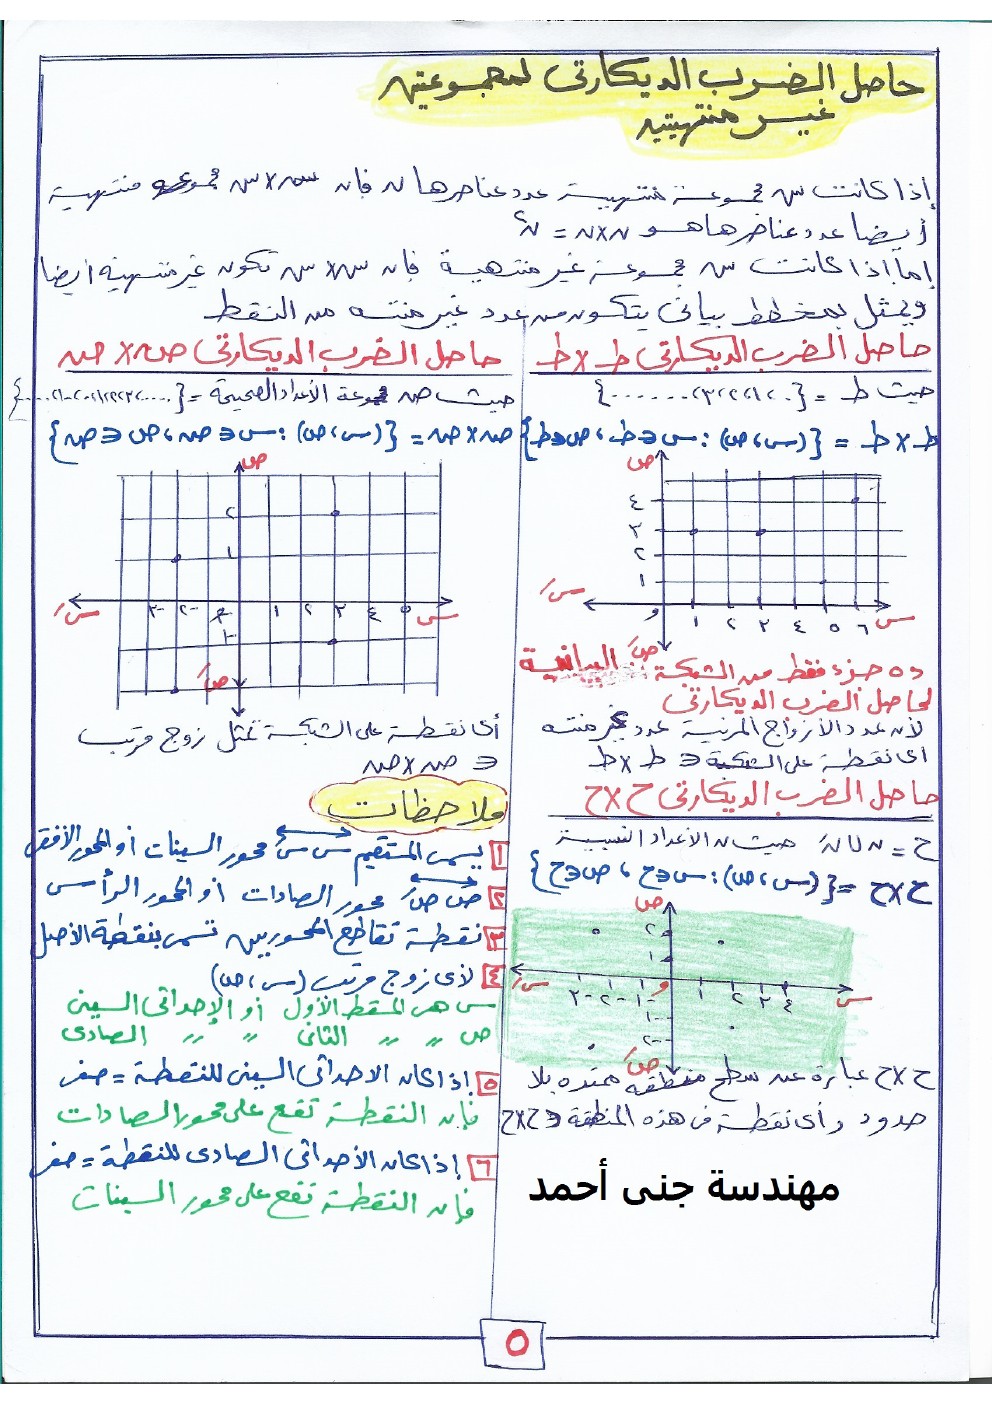 حاصل الضرب الديكارتى لمجموعتين
غير منتهيتين
إذا كانت س مجموعة منتهية عدد عناصرها ن فإن س × س مجموعة منتهية
أيضا عدد عناصرها هو ن × ن = ن²
إما إذا كانت س مجموعة غير منتهية فإن س × س تكون غير منتهية ايضا
ويمثل بمخطط بيانى يتكون من عدد غير منته من النقط
حاصل الضرب الديكارتى ط × ط
حيث ط = {٠،١،٢،٣،.......}
ط × ط = {(س،ص) : س ∈ ط ، ص ∈ ط}
ص
٤
٣
٢
١
س/ و ١ ٢ ٣ ٤ ٥ ٦ س
ص/
ده جزء فقط من الشبكة البيانية
لحاصل الضرب الديكارتى
لأن عدد الأزواج المرتبة عدد غير منته
أى نقطة على الشبكة ∈ ط × ط
حاصل الضرب الديكارتى ح × ح
ح = ن ∪ ن/ حيث ن الأعداد النسبية
ح × ح = {(س،ص) : س ∈ ح ، ص ∈ ح}
ص
٢
١
س/ ٣- ٢- ١- و ١ ٢ ٣ ٤ س
١-
٢-
ص/
ح × ح عبارة عن سطح منطقه ممتده بلا
حدود وأى نقطة فى هذه المنطقة ∈ ح × ح
مهندسة جنى أحمد
حاصل الضرب الديكارتى ص × ص
حيث ص مجموعة الأعداد الصحيحة = {....،٣،٢،١،٠،١-،....}
ص × ص = {(س،ص) : س ∈ ص ، ص ∈ ص}
ص
٢
١
س/ ٣- ٢- ١ ٢ ٣ ٤ ٥ س
١-
ص/
أى نقطة على الشبكة تمثل زوج مرتب
∈ ص × ص
ملاحظات
١ يسمى المستقيم س س/ محور السينات أو المحور الأفقى
٢ ص ص/ محور الصادات أو المحور الرأسى
٣ نقطة تقاطع المحورين تسمى بنقطة الأصل
٤ لأى زوج مرتب (س،ص)
س هى المسقط الأول أو الإحداثى السينى
ص 〃 〃 الثانى 〃 〃 الصادى
٥ إذا كان الاحداثى السينى للنقطة = صفر
فإن النقطة تقع على محور الصادات
٦ إذا كان الأحداثى الصادى للنقطة = صفر
فإن النقطة تقع على محور السينات
٥